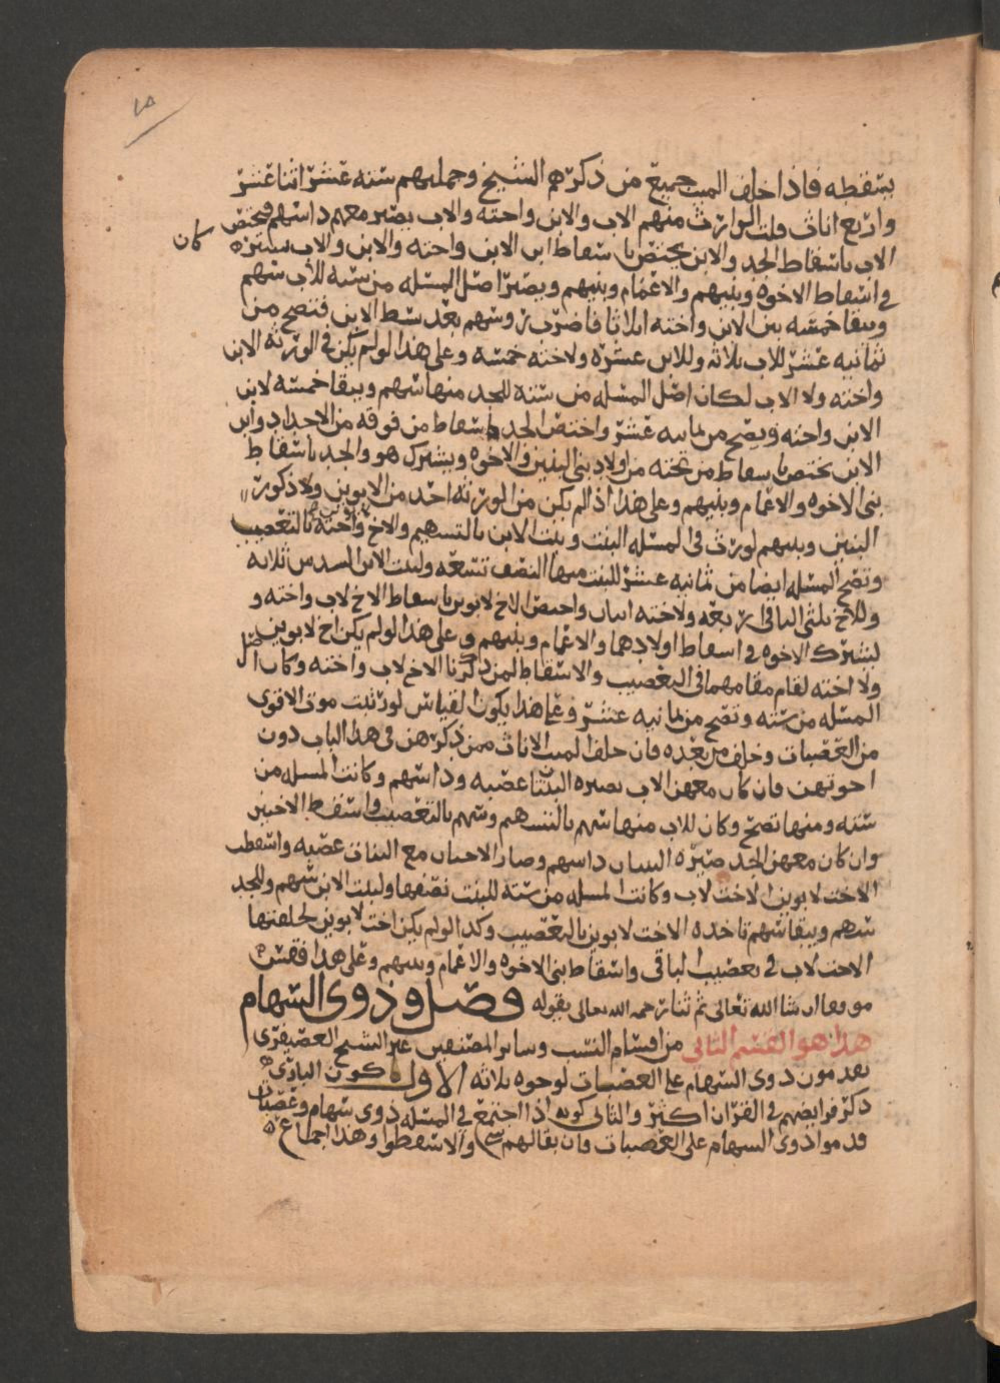 ١٥
يسقطه فاذا خلف الميت جميع من ذكرهم الشيخ وجملتهم سته عشر اثنا عشر
واربع اناث قلت الوارث منهم الاب والابن واخته والاب يصير معهم ذا سهم فيختص
الاب باسقاط الجد والابن يختص باسقاط ابن الابن واخته والابن والاب يشتركا كان
في اسقاط الاخوه وبنيهم والاعمام وبنيهم ويصير اصل المسله من سته للاب سهم
ويبقا خمسه بين الابن واخته اثلاثا فاضرب وسهم بعد بسط الابن فتصح من
ثمانيه عشر للاب ثلاثه وللابن عشره ولاخته خمسه وعلى هذا لو لم يكن في الورثه الابن
واخته ولا الاب لكان اصل المسله من سته للجد منها سهم ويبقا خمسه لابن
الابن واخته ويصح من ثمانيه عشر واختص الجد باسقاط من فوقه من الاجداد وابن
الابن يختص باسقاط من تحته من اولاد بني البنين والاخوه ويشترك هو والجد باسقاط
بني الاخوه والاعمام وبنيهم وعلى هذا اذا لم يكن من الورثه احد من الابوين ولا ذكور
البنين وبنيهم لورث في المسله البنت وبنت الابن بالتسهيم والاخ واخته بالتعصيب
وتصح المسله ايضا من ثمانيه عشر للبنت منها النصف تسعه ولبنت الابن السدس ثلاثه
وللاخ ثلثي الباقي اربعه ولاخته اثنان واختص الاخ لابوين باسقاط الاخ لاب واخته و
يشترك الاخوه في اسقاط اولادهما والاعمام وبنيهم وعلى هذا لو لم يكن اخ لابوين
ولا اخته لقام مقامهما في التعصيب والاسقاط لمن ذكرنا الاخ لاب واخته وكان اصل
المسله من سته وتصح من ثمانيه عشر وعلى هذا يكون القياس لو رتبت موت الاقوى
من العصبات وخلف من بعده فان خلف الميت الاناث ممن ذكرهن في هذا الباب دون
اخوتهن فان كان معهن الاب يصيره البنتا عصبه وذا سهم وكانت المسله من
سته ومنها تصح وكان للاب منها سهم بالتسهيم وسهم بالتعصيب واسقط الاختين
وان كان معهن الجد صيره البنتان ذا سهم وصار الاختان مع البنات عصبه واسقطت
الاخت لابوين الاخت لاب وكانت المسله من سته للبنت نصفها ولبنت الابن سهم وللجد
سهم ويبقا سهم تاخذه الاخت لابوين بالتعصيب وكذا لو لم يكن اخت لابوين لخلفتها
الاخت لاب في تعصيب الباقي واسقاط بني الاخوه والاعمام وبنيهم وعلى هذا فقس
موفقا ان شا الله تعالى ثم ثنا رحمه الله تعالى بقوله فصل وذوى السهام
هذا هو القسم الثاني من اقسام النسب وساير المصنفين غير الشيخ العصيفري
يقدمون ذوى السهام على العصبات لوجوه ثلاثه الاول كون البارى
ذكر فرايضهم في القران اكثر والثاني كونه اذا اجتمع في المسله ذوى سهام وعصبات
قدموا ذوى السهام على العصبات فان بقا لهم شي والا سقطوا وهذا اجماع